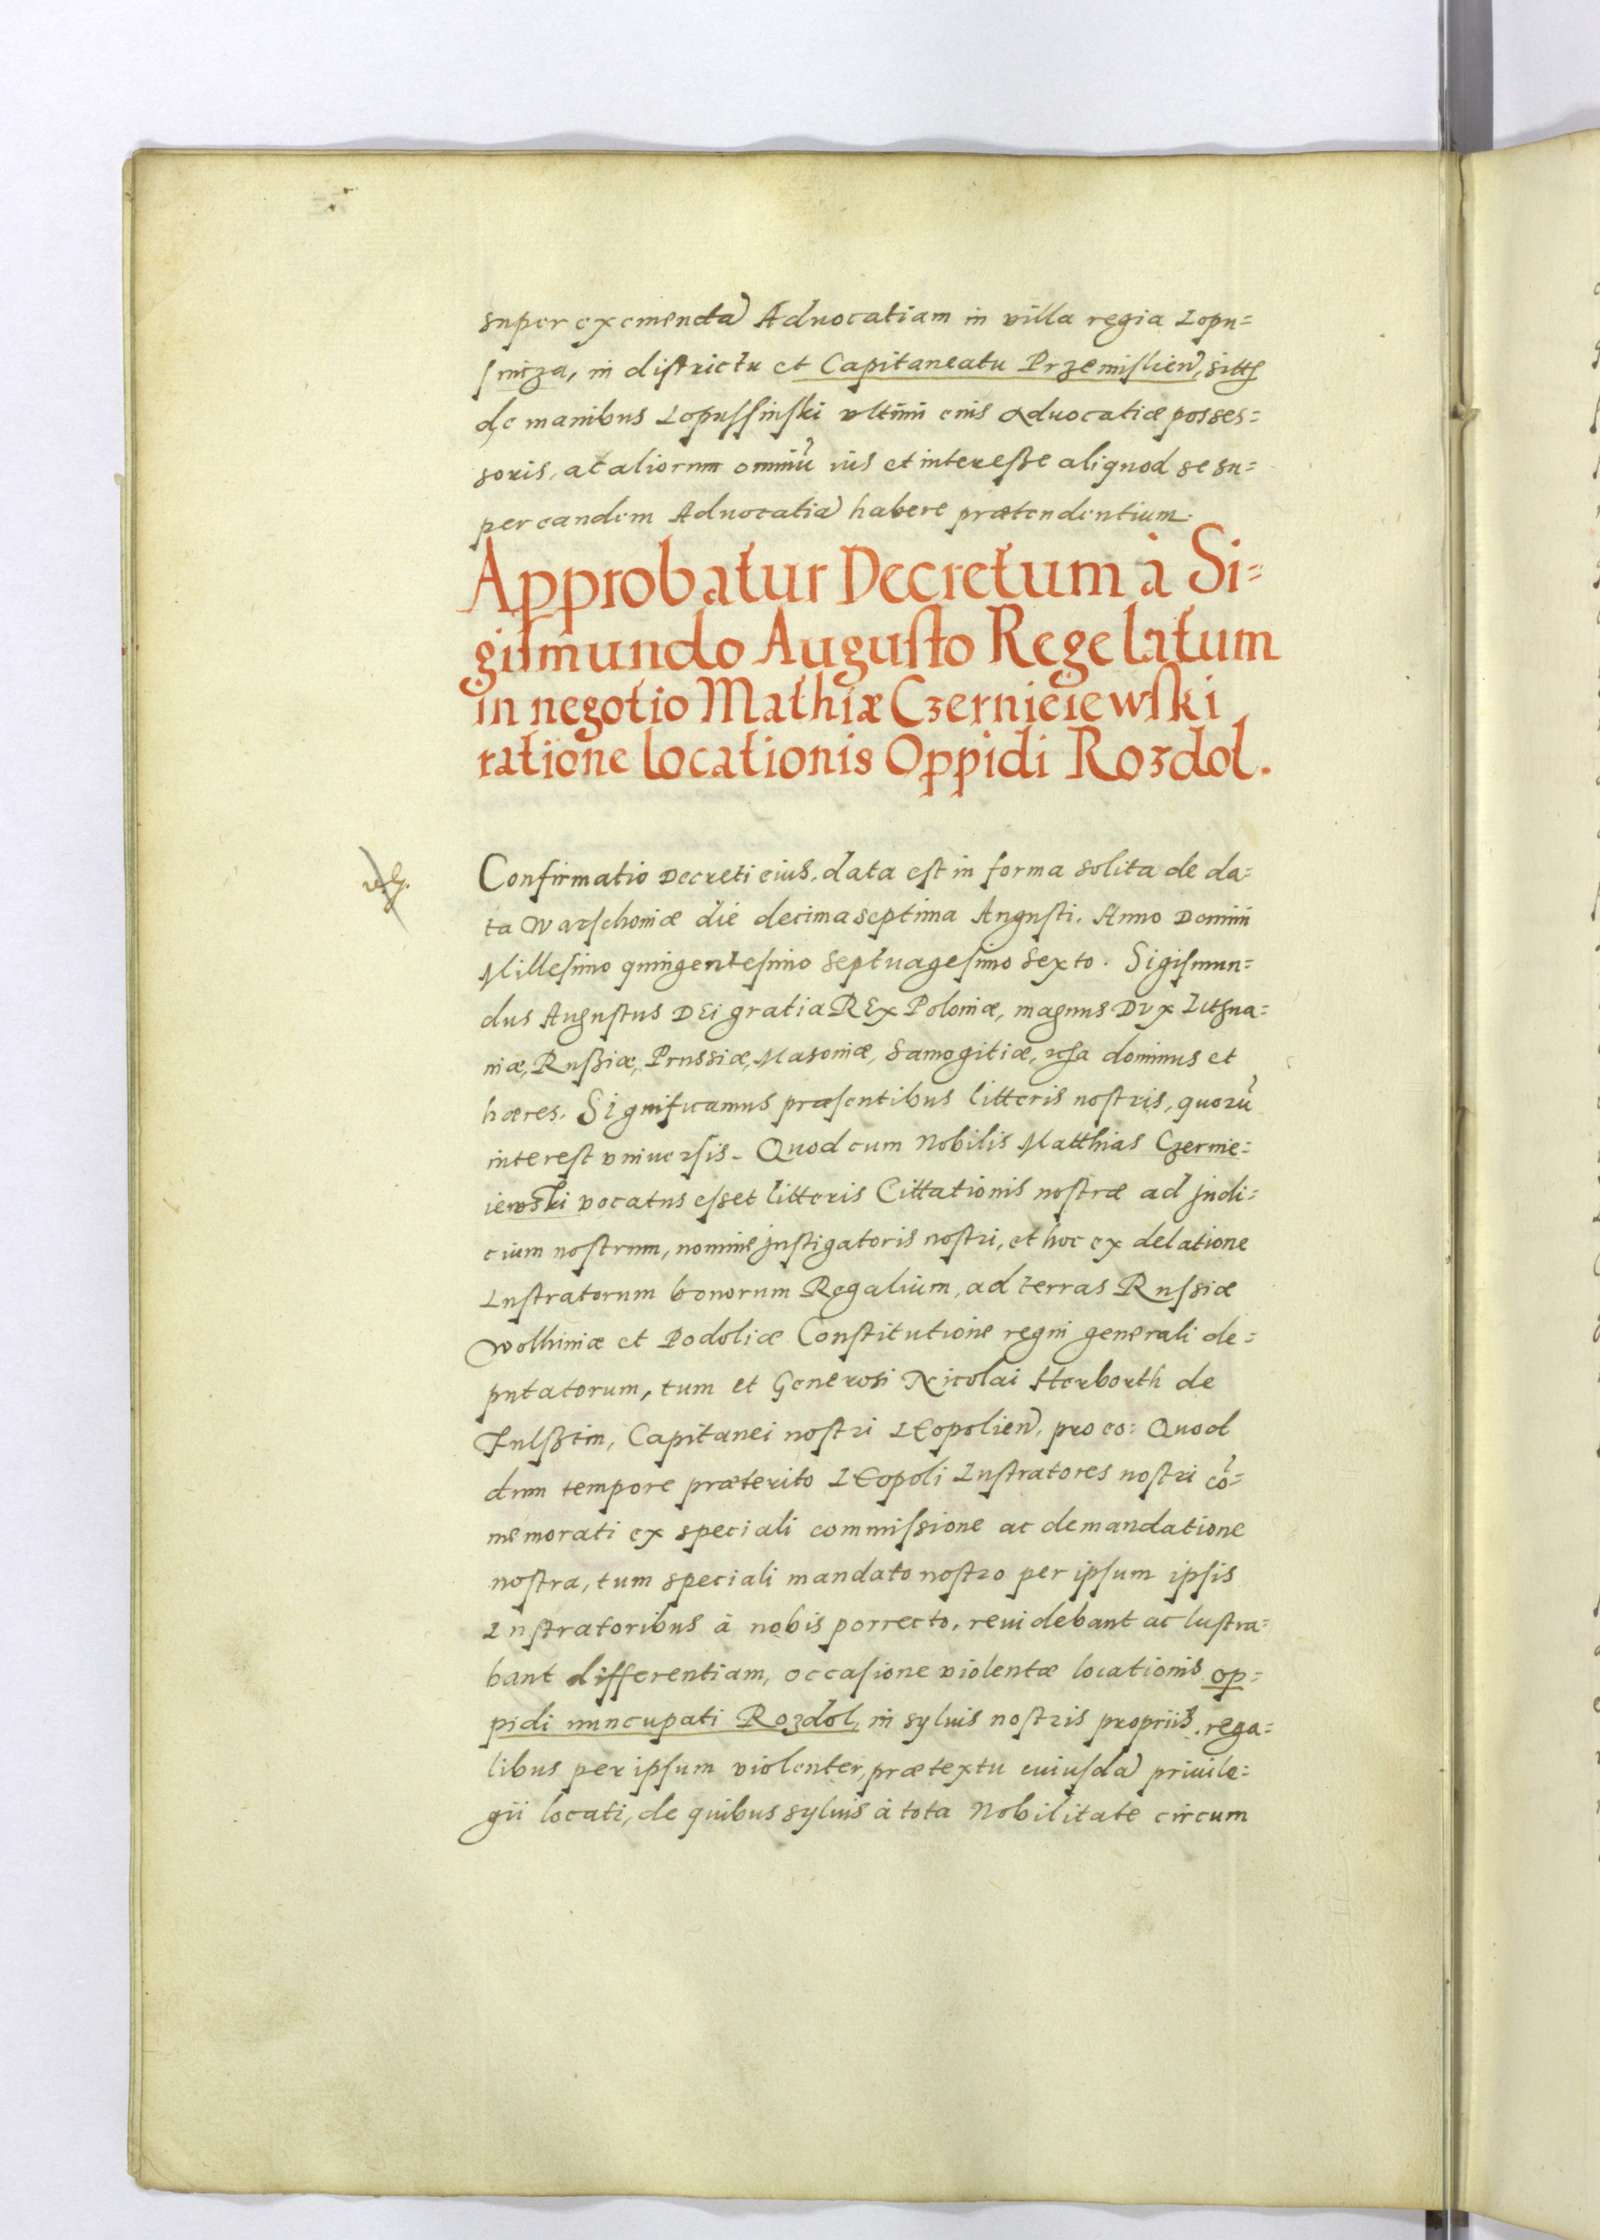 super exemenda Aduocatiam in villa regia Lopu=
snicza, in districtu et Capitaneatu Przemislien, sitt
de manibus Lopussinski vltimi eius Aduocatiæ posses=
soris, ac aliorum omniũ ius et interesse aliquod se su=
per eandem Aduocatia habere prætendentium.
Approbatur Decretum à Si=
gismundo Augusto Rege latum
in negotio Mathiæ Czernieiewski
ratione locationis Oppidi Rozdol.
Confirmatio Decreti eius, data est in forma solita de da=
ta Warschoniæ die decimaseptima Augusti. Anno Domini
Millesimo quingentesimo septuagesimo sexto. Sigismun=
dus Augustus DEi gratia REx Poloniæ, magnus Dux Lithua=
niæ, Russiæ, Prussiæ, Masoniæ, Samogitiæ, dominus et
hæres. Significamus præsentibus litteris nostris, quorũ
interest vniuersis. Quod cum Nobilis Matthias Czernie=
iewski vocatus esset litteris Cittationis nostræ ad judi=
cium nostrum, nomine jnstigatoris nostri, et hoc ex delatione
Lustratorum bonorum Regalium, ad terras Russiæ
Wolhiniæ et Podoliæ Constitutione regni generali de=
putatorum, tum et Generosi Nicolai Herborth de
Fulsztin, Capitanei nostri LEopolien, pro eo: Quod
dum tempore præterito LEopoli Lustratores nostri cõ=
memorati ex speciali commissione ac demandatione
nostra, tum speciali mandato nostro per ipsum ipsis
Lustratoribus à nobis porrecto, reuidebant ac lustra=
bant differentiam, occasione violentæ locationis op=
pidi nuncupati Rozdol, in syluis nostris propriis rega=
libus per ipsum violenter, prætextu cuiusda priuile=
gii locati, de quibus syluis à tota Nobilitate circum